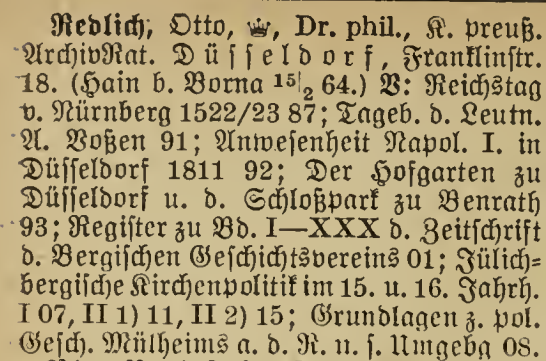 Redlich, Otto, ♛, Dr. phil., K. preuß.
ArchivRat. Düsseldorf, Franklinstr.
18. (Hain b. Borna 15|2 64.) V: Reichstag
v. Nürnberg 1522/23 87; Tageb. d. Leutn.
A. Voßen 91; Anwesenheit Napol. I. in
Düsseldorf 1811 92; Der Hofgarten zu
Düsseldorf u. d. Schloßpark zu Benrath
93; Register zu Bd. I—XXX d. Zeitschrift
d. Bergischen Geschichtsvereins 01; Jülich=
bergische Kirchenpolitik im 15. u. 16. Jahrh.
I 07, II 1) 11, II 2) 15; Grundlagen z. pol.
Gesch. Mülheims a. d. R. u. s. Umgebg 08.